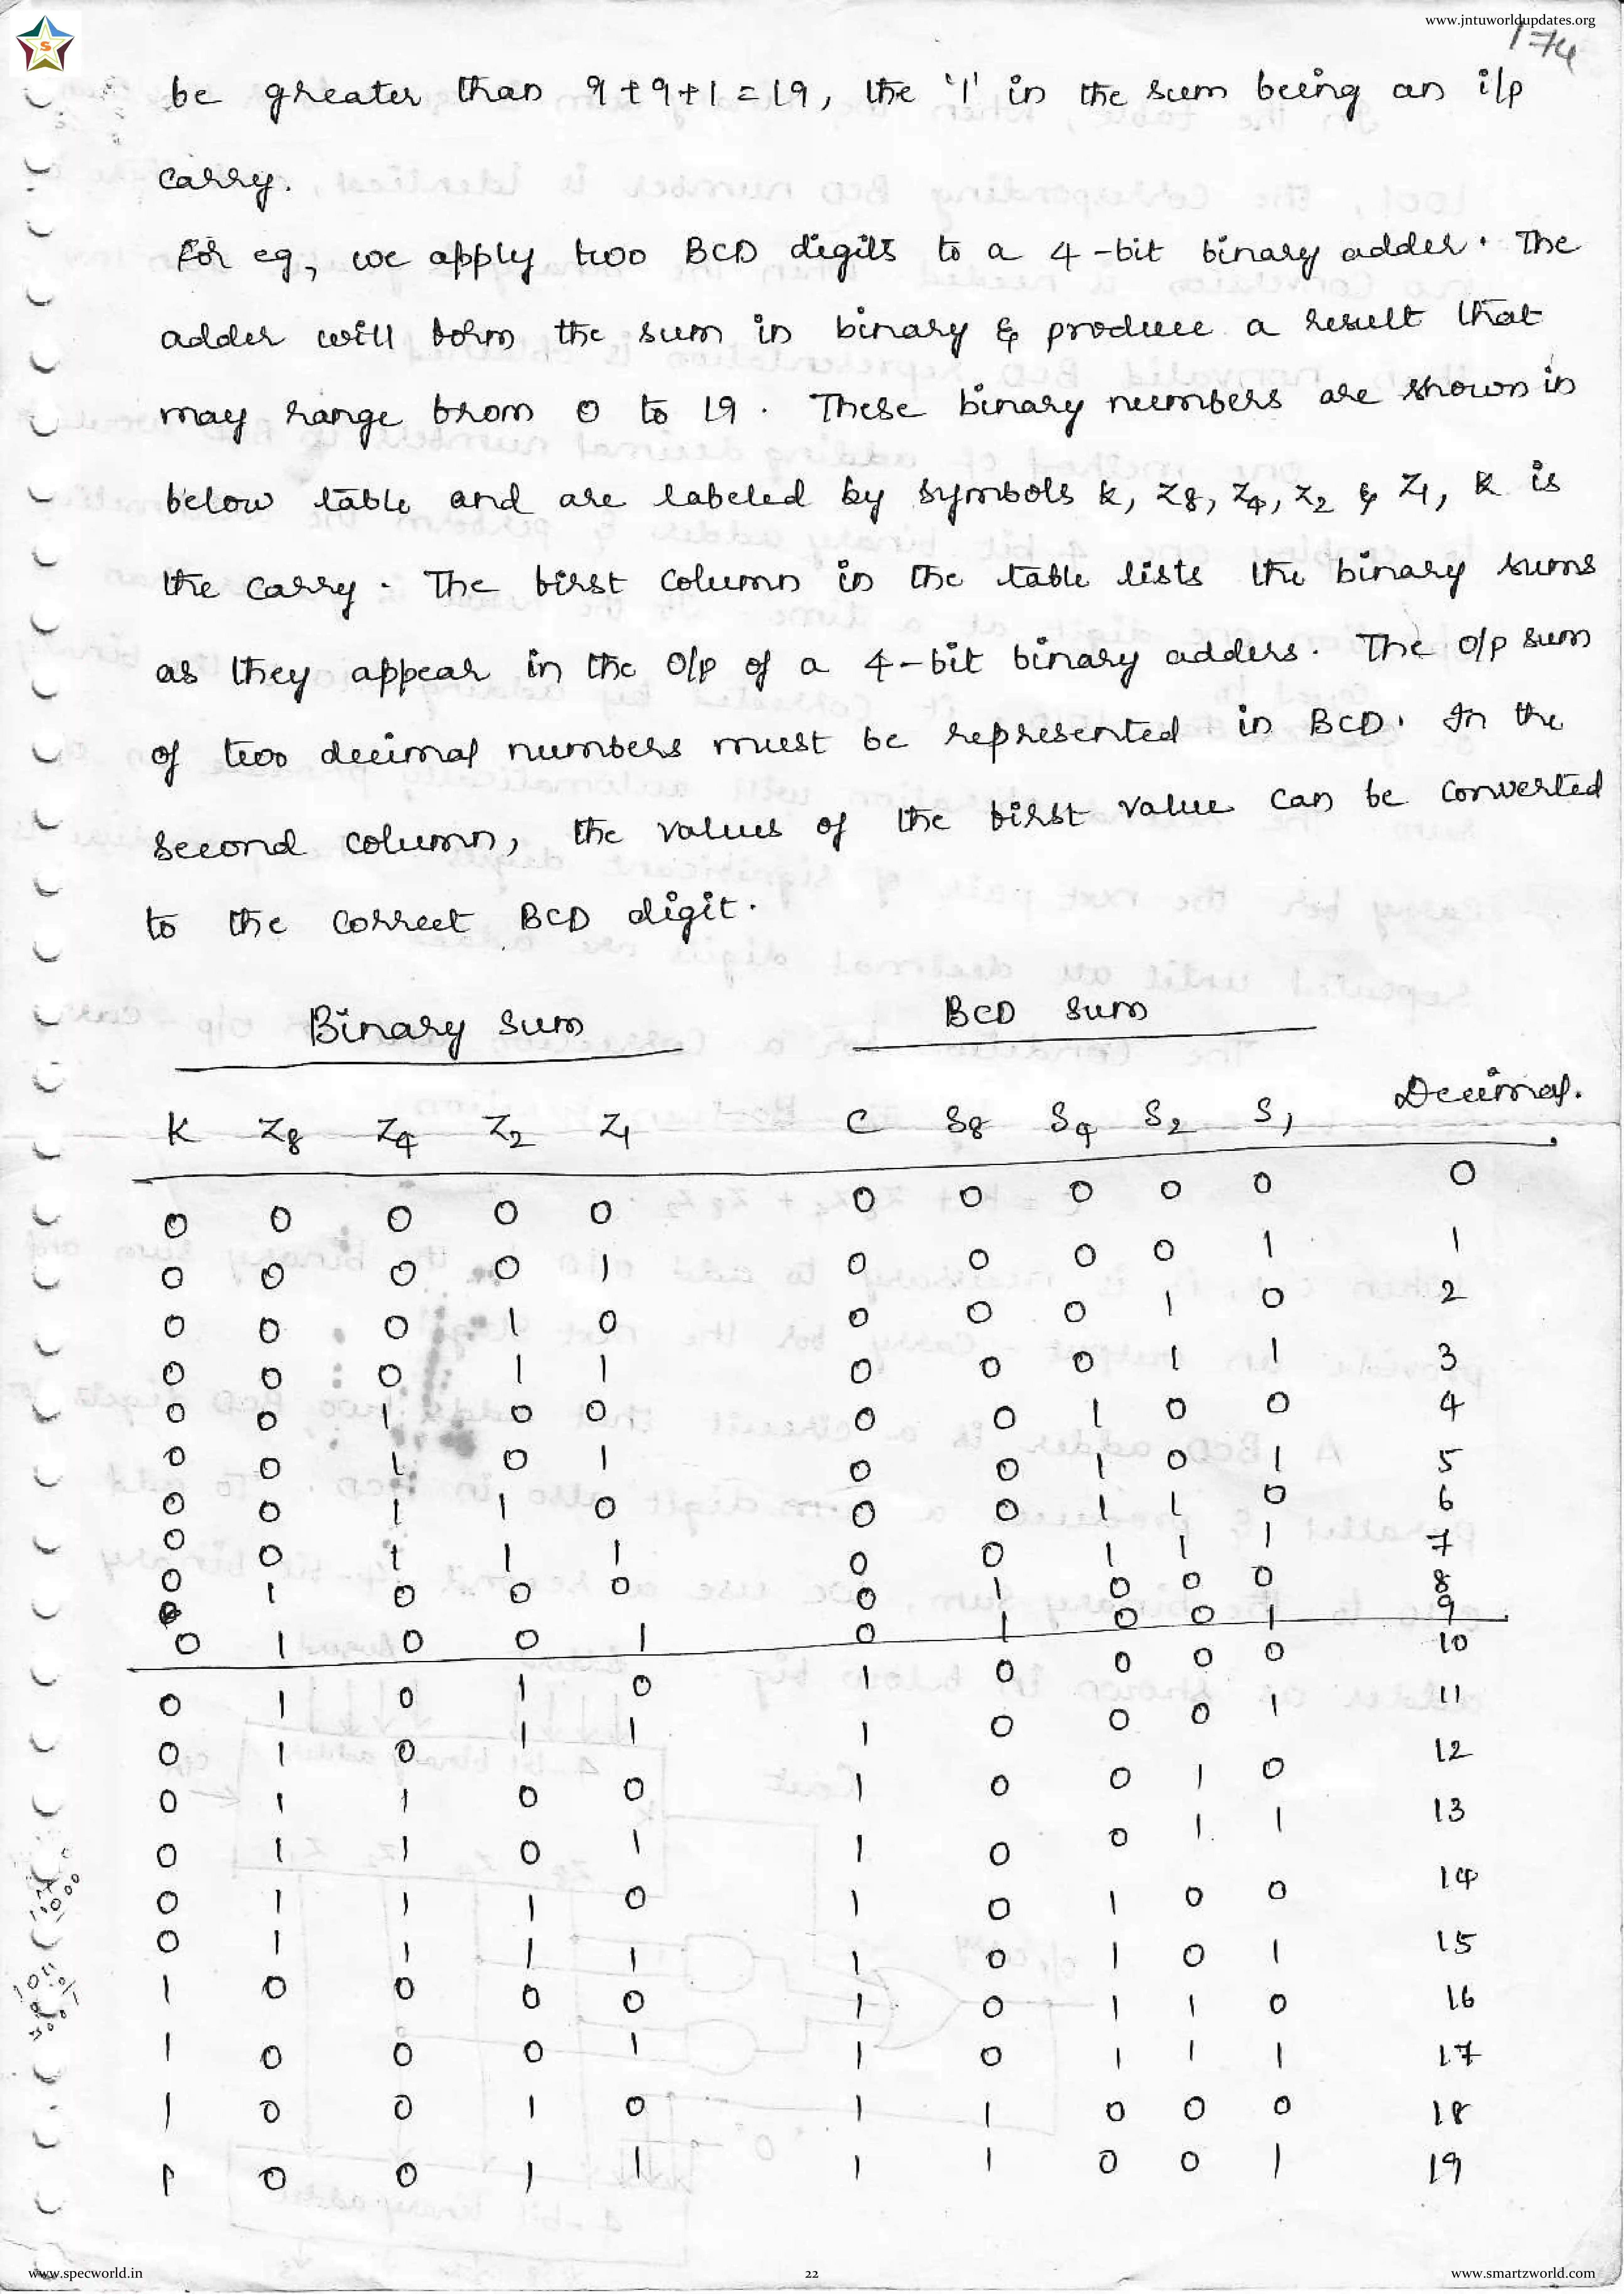 www.jntuworldupdates.org
174
be greater than 9+9+1=19, the '1' in the sum being an i/p
carry.
For eg, we apply two BCD digits to a 4-bit binary adder. The
adder will form the sum in binary & produce a result that
may range from 0 to 19. These binary numbers are shown in
below table and are labeled by symbols k, Z8, Z4, Z2 & Z1, K is
the carry. The first column in the table lists the binary sums
as they appear in the o/p of a 4-bit binary adders. The o/p sum
of two decimal numbers must be represented in BCD. In the
second column, the values of the first value can be converted
to the correct BCD digit.
Binary sum BCD sum
K Z8 Z4 Z2 Z1 C S8 S4 S2 S1 Decimal.
0 0 0 0 0 0 0 0 0 0 0
0 0 0 0 1 0 0 0 0 1 1
0 0 0 1 0 0 0 0 1 0 2
0 0 0 1 1 0 0 0 1 1 3
0 0 1 0 0 0 0 1 0 0 4
0 0 1 0 1 0 0 1 0 1 5
0 0 1 1 0 0 0 1 1 0 6
0 0 1 1 1 0 0 1 1 1 7
0 1 0 0 0 0 1 0 0 0 8
0 1 0 0 1 0 1 0 0 1 9
0 1 0 1 0 1 0 0 0 0 10
0 1 0 1 1 1 0 0 0 1 11
0 1 1 0 0 1 0 0 1 0 12
0 1 1 0 1 1 0 0 1 1 13
0 1 1 1 0 1 0 1 0 0 14
0 1 1 1 1 1 0 1 0 1 15
1 0 0 0 0 1 0 1 1 0 16
1 0 0 0 1 1 0 1 1 1 17
1 0 0 1 0 1 1 0 0 0 18
1 0 0 1 1 1 1 0 0 1 19
www.specworld.in 22 www.smartzworld.com